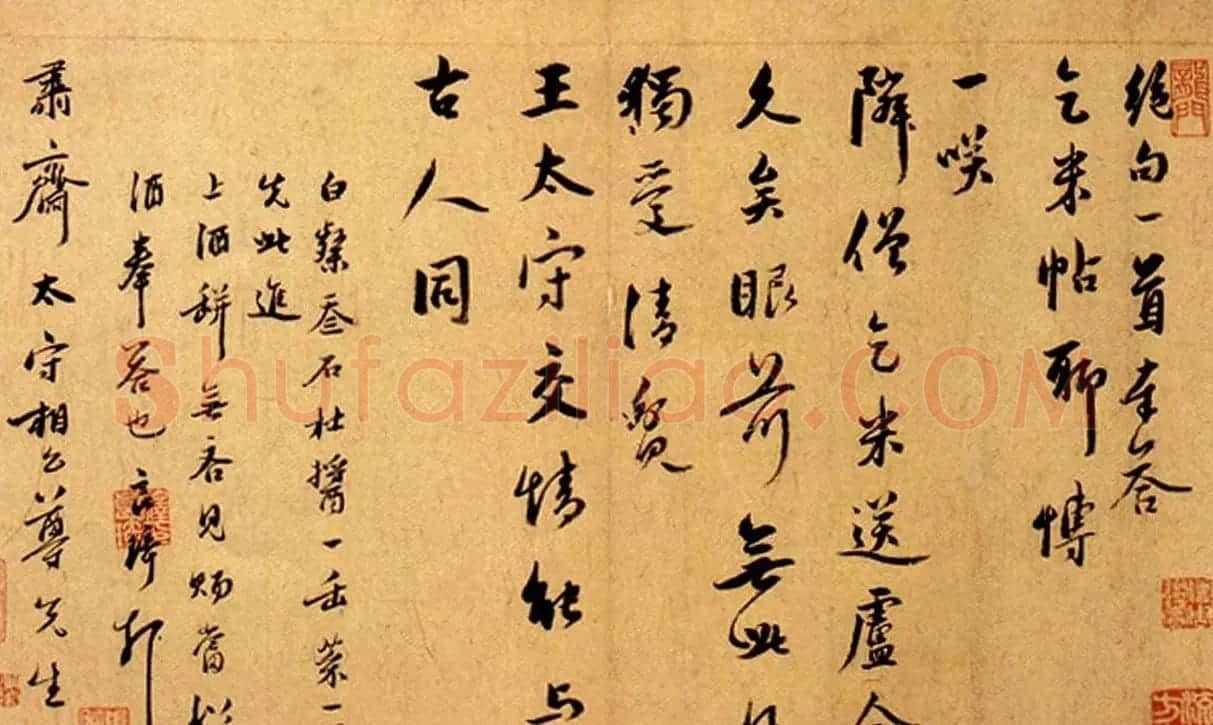 绝句一首奉答
乞米帖聊博
一咲
隣僧乞米送盧仝
久矣眼前無此
獨受清
王太守交情能与
古人同
白粲叁石杜醬一缶菜一
先此進
上酒缾無吝見賜當
酒奉答也言
肅齋太守相公尊先生
Shufaziliao.COM
龍門